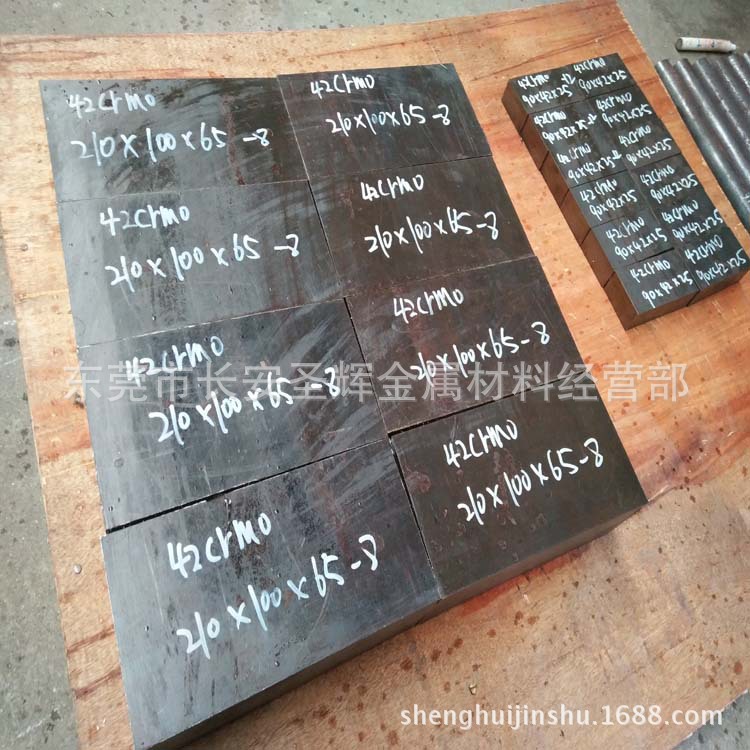 42CrMo
210×100×65-8
42CrMo
210×100×65-8
42CrMo
210×100×65-8
42CrMo
210×100×65-8
42CrMo
210×100×65-8
42CrMo
210×100×65-8
42CrMo
210×100×65-8
42CrMo
210×100×65-8
42CrMo
90×42×25-12
42CrMo
90×42×25
42CrMo
90×42×25-12
42CrMo
90×42×25
42CrMo
90×42×25-12
42CrMo
90×42×25
42CrMo
90×42×25
42CrMo
90×42×25
42CrMo
90×42×25
42CrMo
90×42×25
42CrMo
90×42×25
42CrMo
90×42×25
东莞市长安圣辉金属材料经营部
shenghuijinshu.1688.com